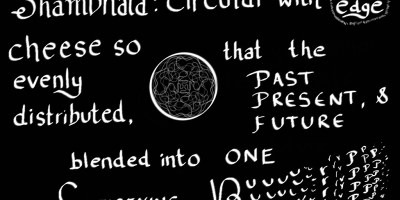 Shambhala: Circular with edge
cheese so that the
evenly PAST
distributed, PRESENT, &
FUTURE
blended into ONE